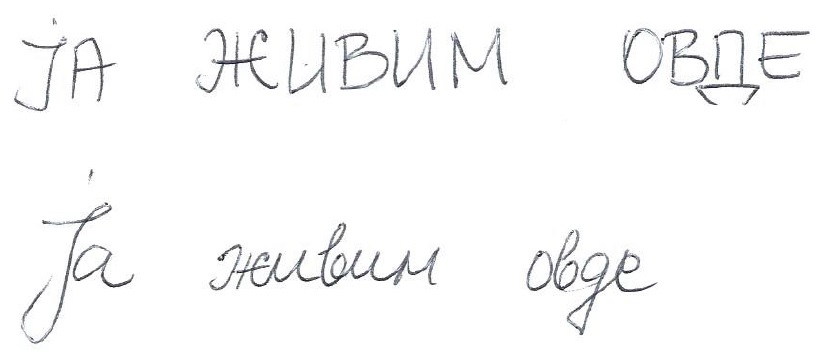 ЈА ЖИВИМ ОВДЕ
Ја живим овде